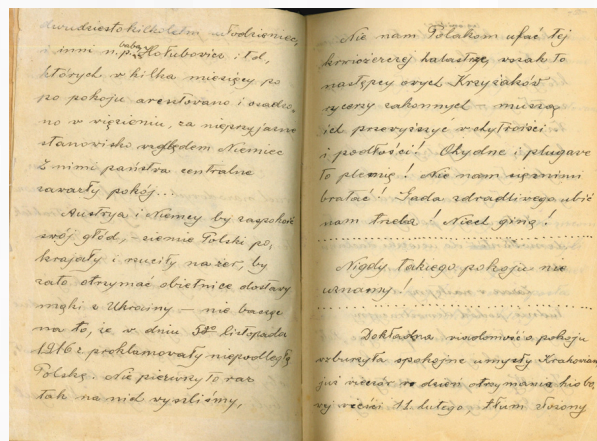 dwudziestokilkoletni młodzieniec,
i inni n.p. baba Hołubowicz i t.d,
których w kilka miesięcy po
po pokoju aresztowano i osadzo-
no w więzieniu, za nieprzyjazne
stanowisko względem Niemiec
Z nimi państwa centralne
zawarły pokój...
Austrya i Niemcy by zaspokoić
swój głód, – ziemie Polski po,
krajały i rzuciły na żer, by
zato otrzymać obietnicę dostawy
mąki z Ukrainy – nie bacząc
na to, że w dniu 5go listopada
1916 r. proklamowały niepodległą
Polskę. Nie pierwszy to raz
tak na nich wyszliśmy,
Nie nam Polakom ufać tej
krwiożerczej hałastrze, wszak to
następcy owych Krzyżaków
rycerzy zakonnych muszą
ich przewyższyć w chytrości
i podłości! Ohydne i plugawe
to plemię! Nie nam się z nimi
bratać! Gada zdradliwego ubić
nam trzeba! Niech giną!
Nigdy takiego pokoju nie
uznamy!
Dokładna wiadomość o pokoju
wzburzyła spokojne umysły Krakowian
już wieczór w dzień otrzymania hiobo,
wej wieści 11. lutego, tłum złożony